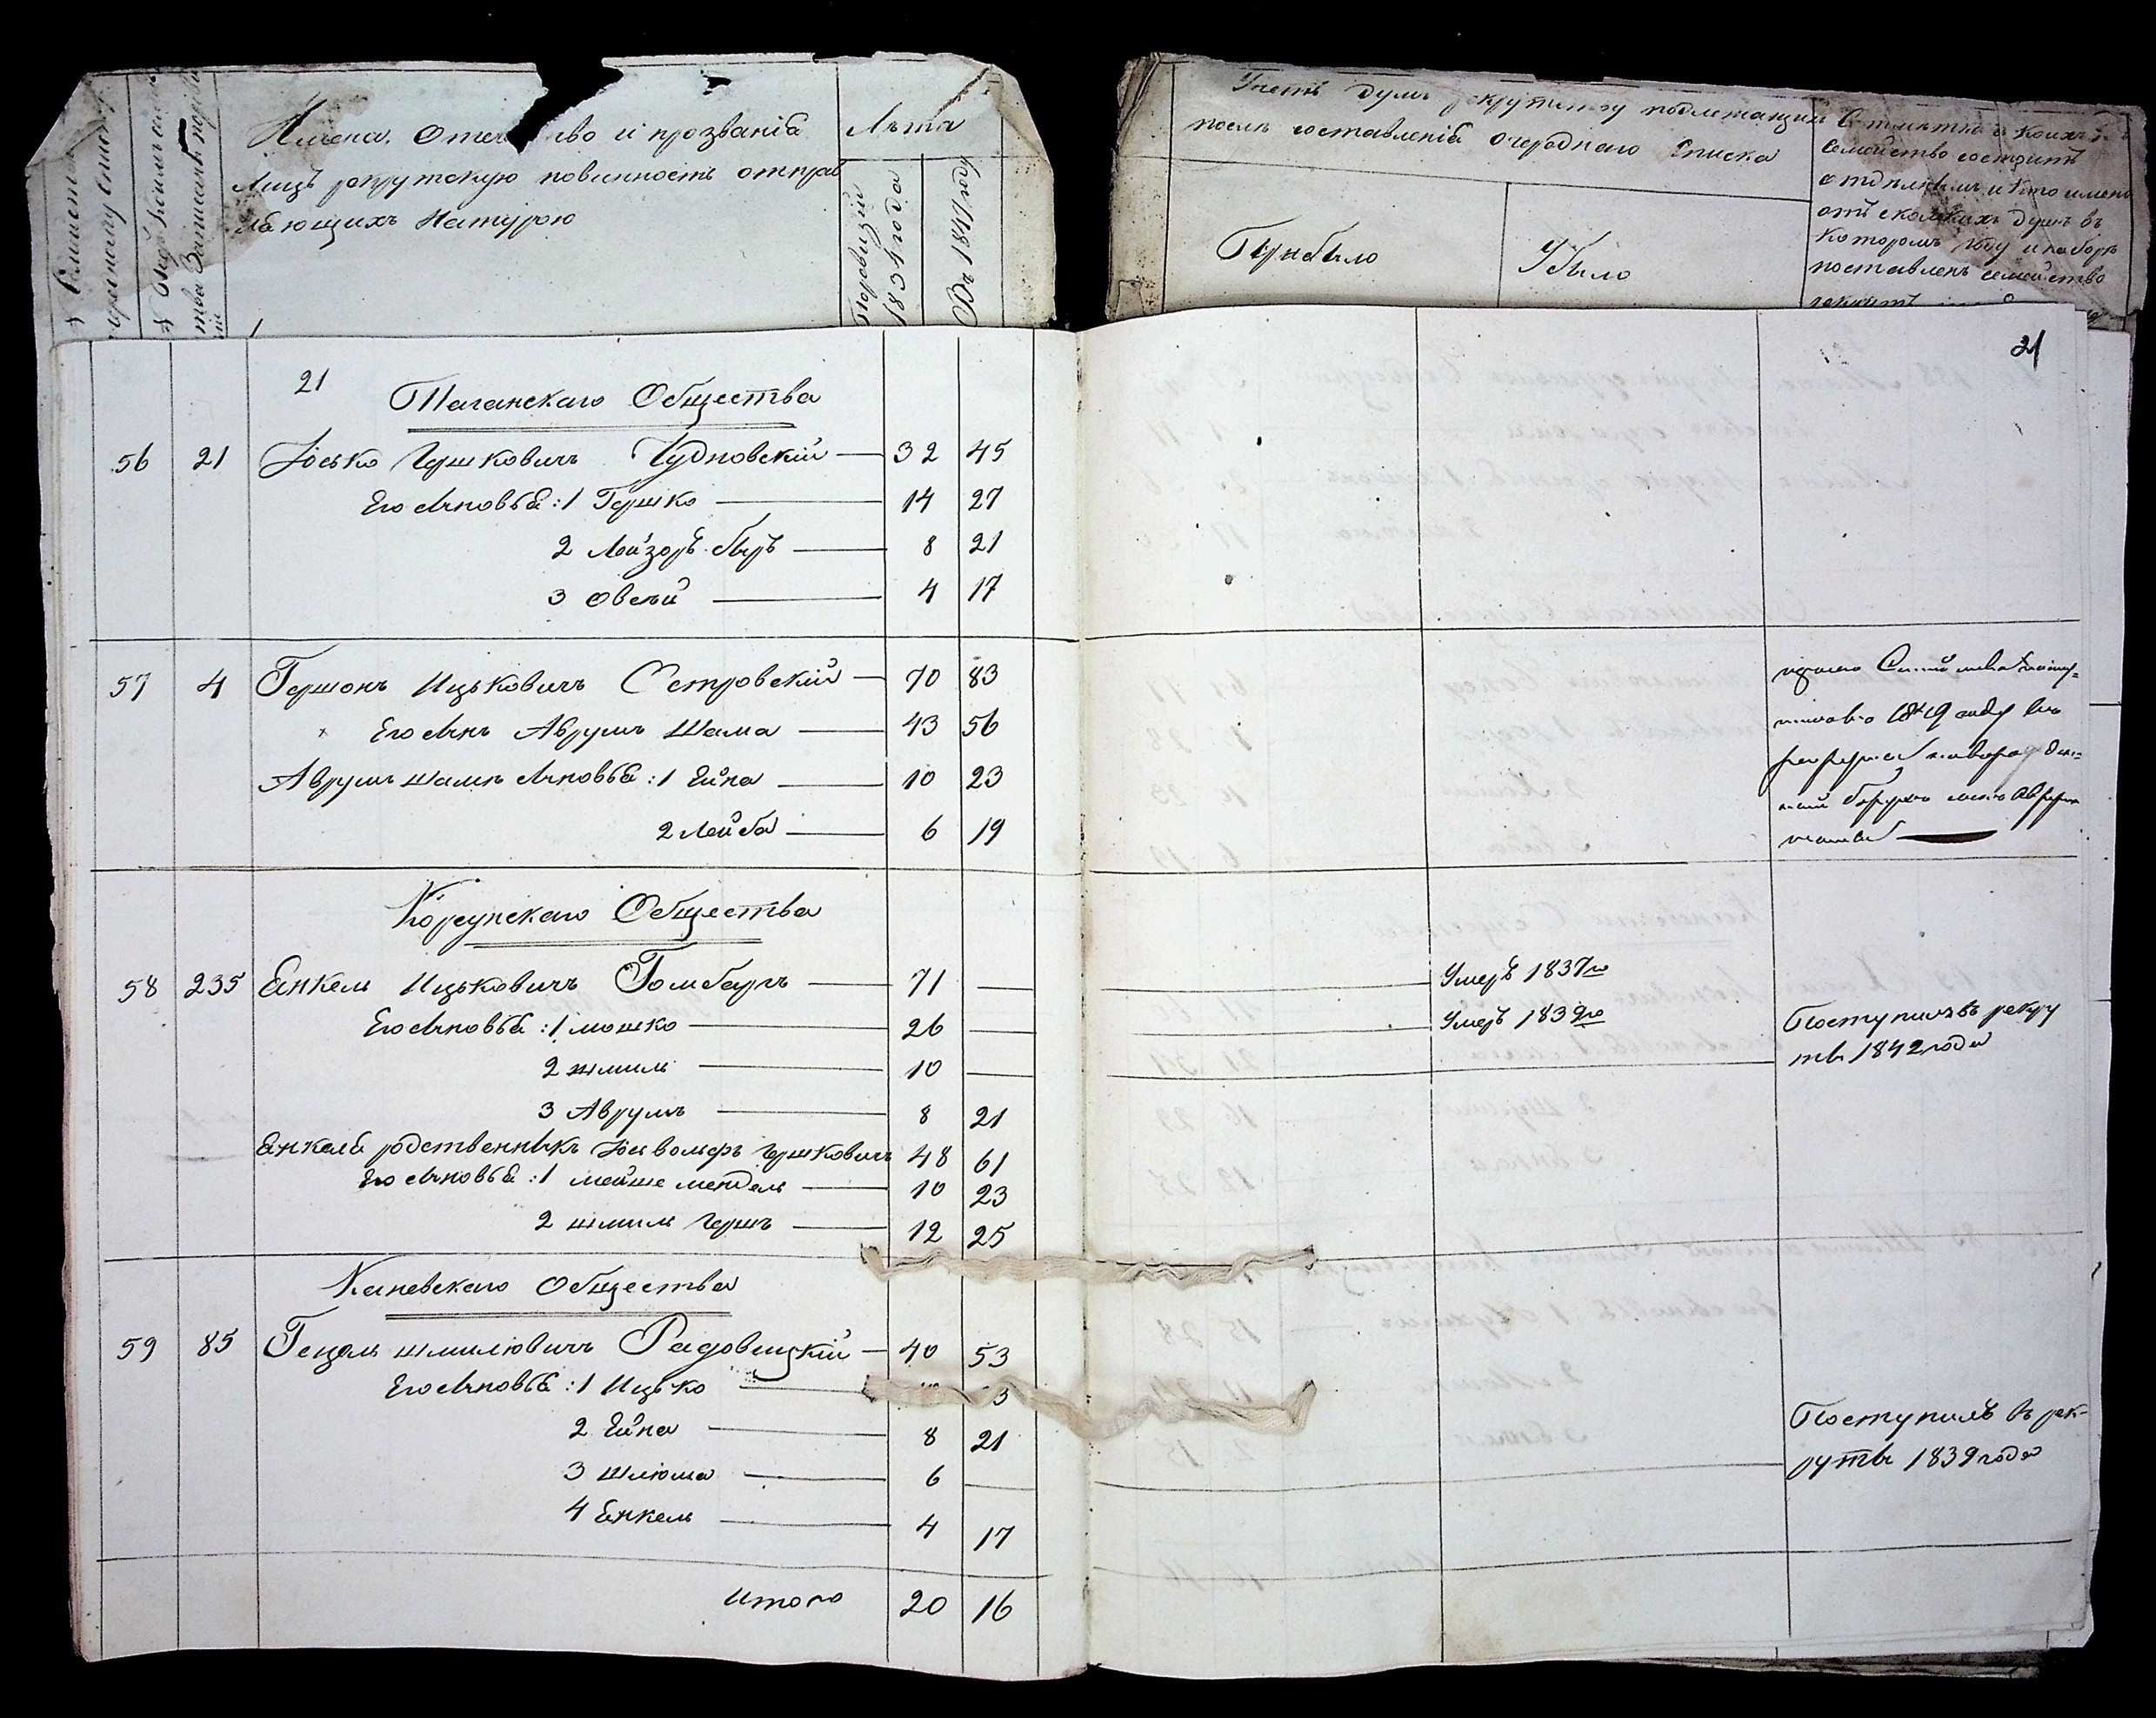 Имена, Отечество и прозванія
Лѣта
Лицъ рекрутскую повинность отправ
ляющихъ Натурою
По ревизіи
1834 года
Въ 1847 году
Учетъ душъ рекрутству подлежащимъ
послѣ составленія очереднаго Списка
Прибыло
Убыло
семейство состоитъ
отдѣльнымъ и кто имено
отъ сколькихъ душъ въ
которомъ году и наборѣ
поставленъ семейство
21
21
Таганскаго Общества
56 21 Іосько Гершковичъ Чудновскій 32 45
Его Сыновья: 1 Гершко 14 27
2 Лейзоръ беръ 8 21
3 Овсѣй 4 17
57 4 Гершонъ Ицьковичъ Островскій 70 83
Его Сынъ Аврумъ Шама 43 56
Аврумъ шамы Сыновья: 1 Ейна 10 23
2 Лейба 6 19
Корсунскаго Общества
58 235 Енкель Ицьковичъ Гомбергъ 71 — Умеръ 1837го
Его Сыновья: 1 мошко 26 — Умеръ 1839го
2 шмиль 10 — Поступилъ въ рекру
ты 1842 года
3 Аврумъ 8 21
Енкеля родственникъ Іось вольфъ Гершковичъ 48 61
Его Сыновья: 1 мейше мендель 10 23
2 шмиль Гершъ 12 25
Каневскаго Общества
59 85 Гецель шмилювичъ Радовицкій 40 53
Его Сыновья: 1 Ицько
2 Ейна 8 21
3 шлюма 6 — Поступилъ въ рек-
руты 1839 года
4 Енкель 4 17
Итого 20 16